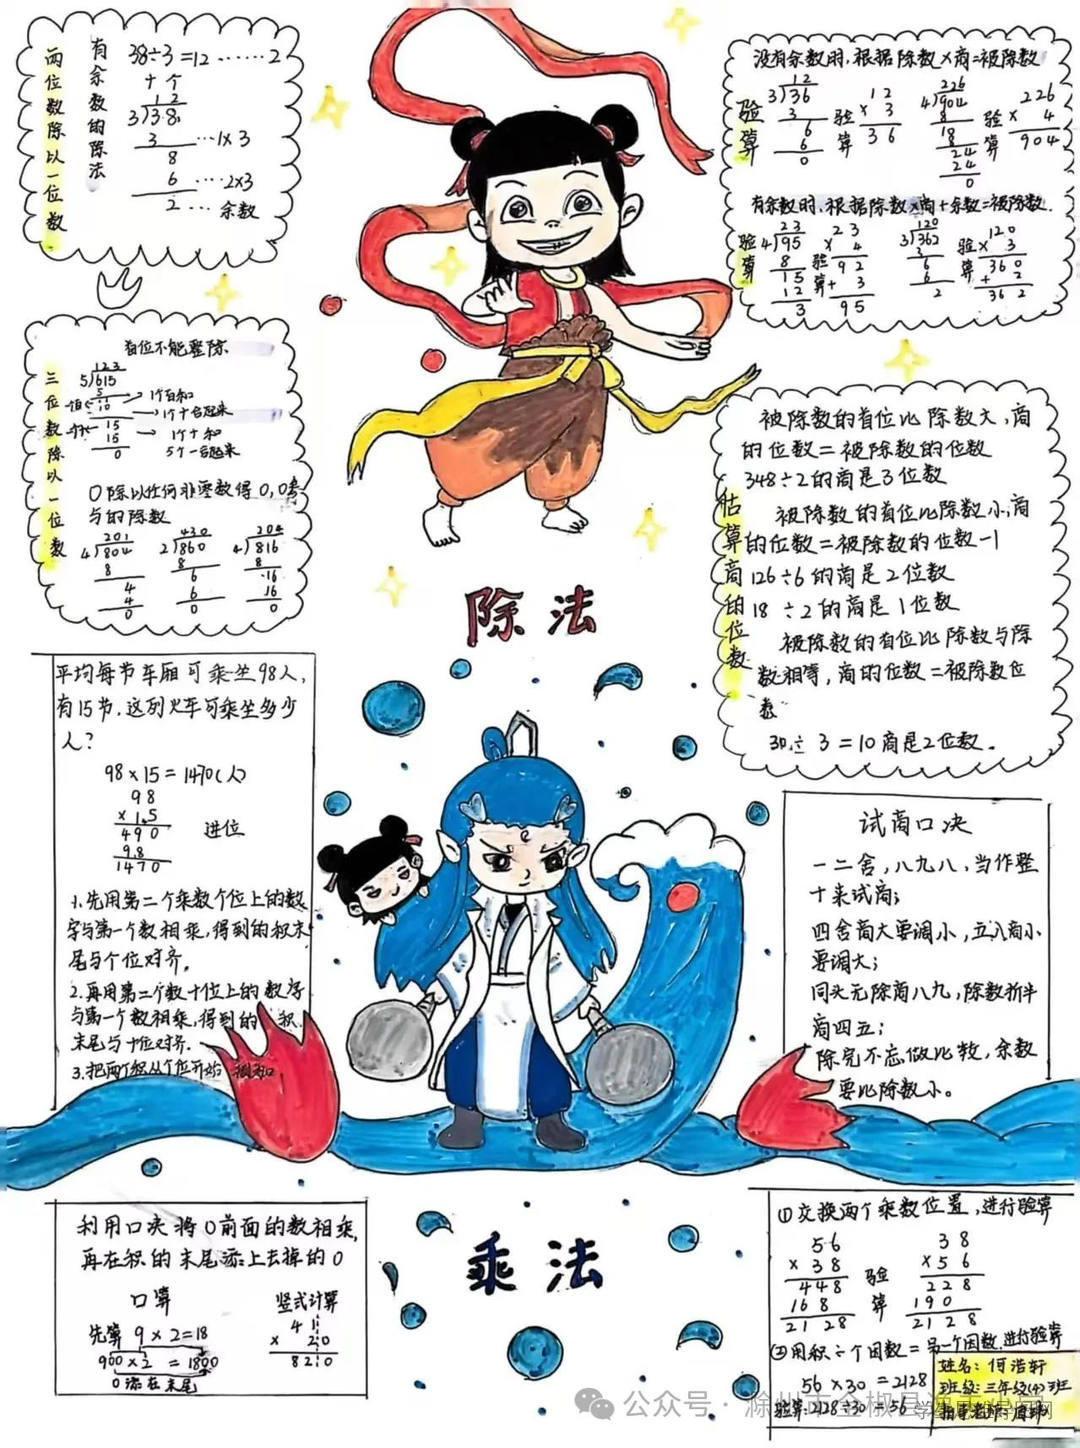 两位数除以一位数
有余数的除法
38÷3=12……2
十个
12
3)38
3 …1×3
8
6 …2×3
2 … 余数
没有余数时,根据除数×商=被除数
验算
12
3)36
3
6
6
0
验算
12
× 3
36
226
4)904
8
18
24
24
0
验算
226
× 4
904
有余数时,根据除数×商+余数=被除数.
验算
23
4)95
8
15
12
3
验算
23
× 4
92
+ 3
95
120
3)362
3
6
6
2
验算
120
× 3
360
+ 2
362
三位数除以一位数
首位不能整除
123
5)615
5
10
15
15
0
1个百和
1个十合起来
1个十和
5个一合起来
0除以任何非零数得0,0
与的除数
201
4)804
8
4
4
0
430
2)860
8
6
6
0
204
4)816
8
16
16
0
估算商的位数
被除数的首位比除数大,商
的位数=被除数的位数
348÷2的商是3位数
被除数的首位比除数小,商
的位数=被除数的位数-1
126÷6的商是2位数
18÷2的商是1位数
被除数的首位比除数与除
数相等,商的位数=被除数位
数
30÷3=10商是2位数.
除法
平均每节车厢可乘坐98人,
有15节.这列火车可乘坐多少
人?
98×15=1470(人)
98
×15
490
98
1470
进位
1.先用第二个乘数个位上的数
字与第一个数相乘,得到的积末
尾与个位对齐.
2.再用第二个数十位上的数字
与第一个数相乘,得到的积
末尾与十位对齐.
3.把两个积从个位开始相加.
试商口决
一二舍,八九八,当作整
十来试商;
四舍商大要调小,五入商小
要调大;
同头无除商八九,除数折半
商四五;
除完不忘做比较,余数
要比除数小。
利用口决将0前面的数相乘,
再在积的末尾添上去掉的0
口算
先算 9×2=18
900×2=1800
0添在末尾
竖式计算
41
× 20
820
乘法
①交换两个乘数位置,进行验算
56
×38
448
168
2128
验算
38
×56
228
190
2128
②用积÷个因数=另一个因数.进行验算
56×30=2128
验算:2128÷30=56
姓名:何浩轩
班级:三年级(4)班
指导老师:
公众号·滁州市全椒县